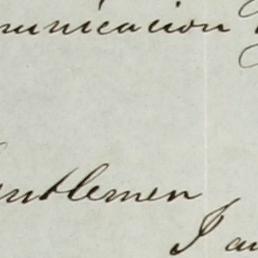 munication
Gentlemen
I am